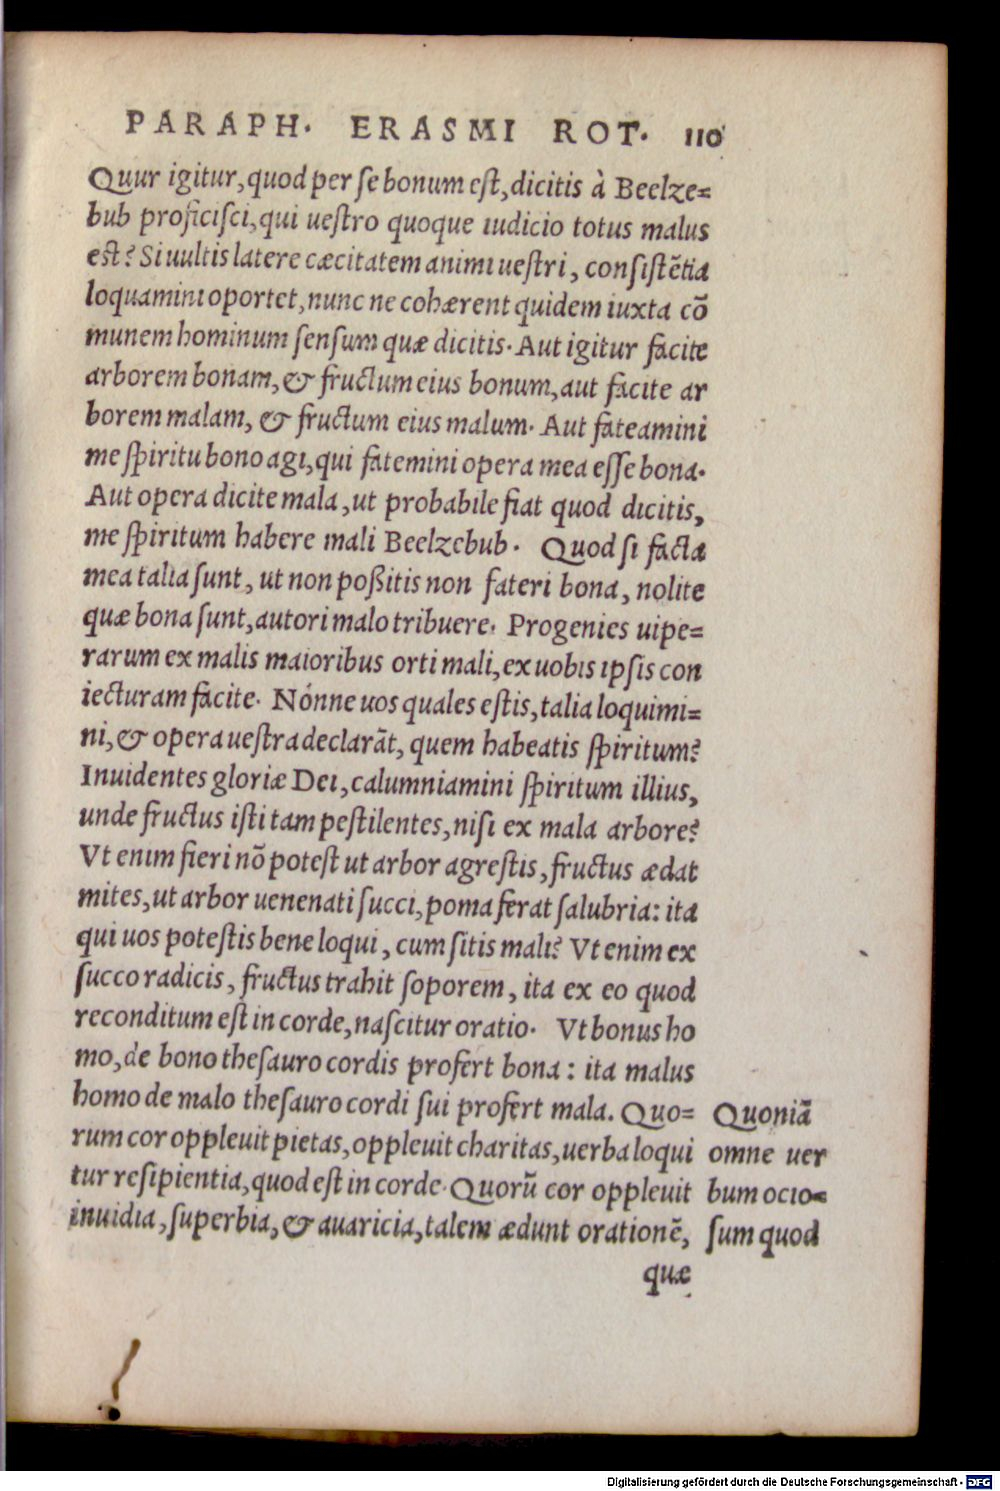 PARAPH. ERASMI ROT. 110
Quur igitur, quod per se bonum est, dicitis à Beelze=
bub proficisci, qui uestro quoque iudicio totus malus
est? Si uultis latere cæcitatem animi uestri, consistẽtia
loquamini oportet, nunc ne cohærent quidem iuxta cõ
munem hominum sensum quæ dicitis. Aut igitur facite
arborem bonam, & fructum eius bonum, aut facite ar
borem malam, & fructum eius malum. Aut fateamini
me spiritu bono agi, qui fatemini opera mea esse bona.
Aut opera dicite mala, ut probabile fiat quod dicitis,
me spiritum habere mali Beelzebub. Quod si facta
mea talia sunt, ut non poßitis non fateri bona, nolite
quæ bona sunt, autori malo tribuere. Progenies uipe=
rarum ex malis maioribus orti mali, ex uobis ipsis con
iecturam facite. Nónne uos quales estis, talia loquimi=
ni, & opera uestra declarãt, quem habeatis spiritum?
Inuidentes gloriæ Dei, calumniamini spiritum illius,
unde fructus isti tam pestilentes, nisi ex mala arbore?
Vt enim fieri nõ potest ut arbor agrestis, fructus ædat
mites, ut arbor uenenati succi, poma ferat salubria: ita
qui uos potestis bene loqui, cum sitis mali? Vt enim ex
succo radicis, fructus trahit soporem, ita ex eo quod
reconditum est in corde, nascitur oratio. Vt bonus ho
mo, de bono thesauro cordis profert bona: ita malus
homo de malo thesauro cordi sui profert mala. Quo=
rum cor oppleuit pietas, oppleuit charitas, uerba loqui
tur resipientia, quod est in corde. Quorũ cor oppleuit
inuidia, superbia, & auaricia, talem ædunt orationẽ,
quæ
Quoniã
omne uer
bum ocio=
sum quod
Digitalisierung gefördert durch die Deutsche Forschungsgemeinschaft - DFG